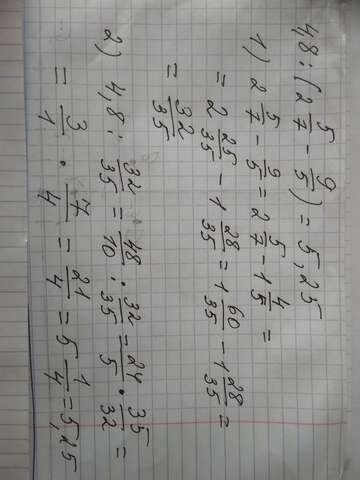 4,8 : (2 5/7 - 9/5) = 5,25
1) 2 5/7 - 9/5 = 2 5/7 - 1 4/5 =
= 2 25/35 - 1 28/35 = 1 60/35 - 1 28/35 =
= 32/35
2) 4,8 : 32/35 = 48/10 : 32/35 = 24/5 · 35/32 =
= 3/1 · 7/4 = 21/4 = 5 1/4 = 5,25